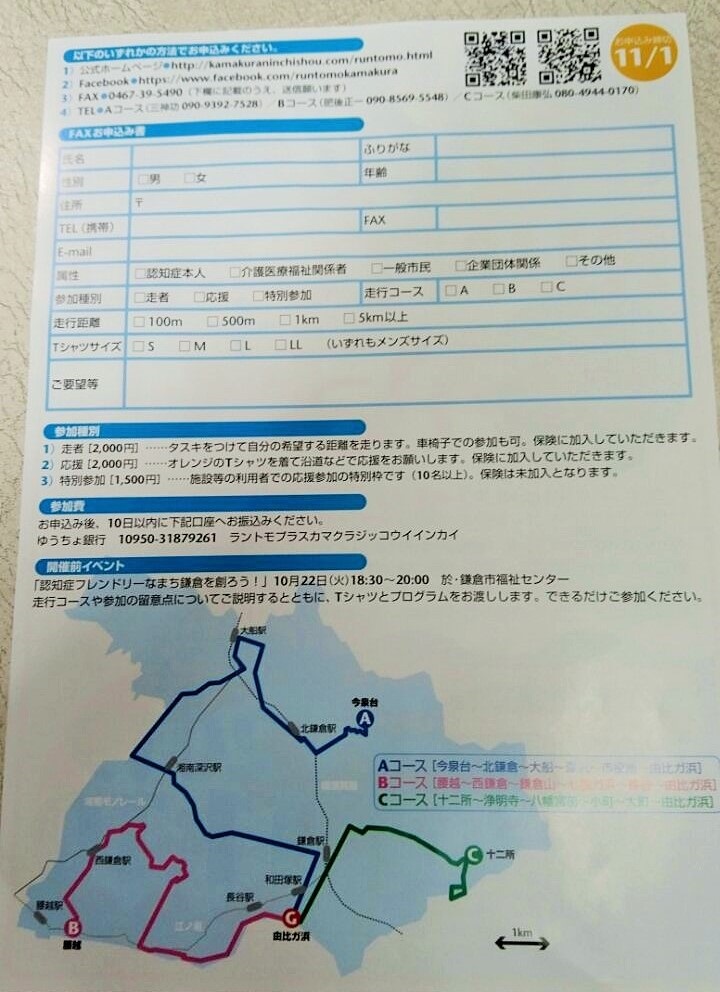 以下のいずれかの方法でお申込みください。
1）公式ホームページ●http://kamakuraninchishou.com/runtomo.html
2）Facebook●https://www.facebook.com/runtomokamakura
3）FAX●0467-39-5490（下欄に記載のうえ、送信願います）
4）TEL●Aコース（三神功 090-9392-7528）／Bコース（肥後正一 090-8569-5548）／Cコース（柴田康弘 080-4944-0170）
お申込み締切
11/1
FAXお申込み書
氏名 ふりがな
性別 □男 □女 年齢
住所 〒
TEL（携帯） FAX
E-mail
属性 □認知症本人 □介護医療福祉関係者 □一般市民 □企業団体関係 □その他
参加種別 □走者 □応援 □特別参加 走行コース □A □B □C
走行距離 □100m □500m □1km □5km以上
Tシャツサイズ □S □M □L □LL （いずれもメンズサイズ）
ご要望等
参加種別
1）走者［2,000円］……タスキをつけて自分の希望する距離を走ります。車椅子での参加も可。保険に加入していただきます。
2）応援［2,000円］……オレンジのTシャツを着て沿道などで応援をお願いします。保険に加入していただきます。
3）特別参加［1,500円］……施設等の利用者での応援参加の特別枠です（10名以上）。保険は未加入となります。
参加費
お申込み後、10日以内に下記口座へお振込みください。
ゆうちょ銀行 10950-31879261 ラントモプラスカマクラジッコウイインカイ
開催前イベント
「認知症フレンドリーなまち鎌倉を創ろう！」10月22日（火）18:30～20:00 於・鎌倉市福祉センター
走行コースや参加の留意点についてご説明するとともに、Tシャツとプログラムをお渡しします。できるだけご参加ください。
大船駅
今泉台
A
北鎌倉駅
湘南深沢駅
Aコース［今泉台～北鎌倉～大船～
由比ガ浜］
Bコース［腰越～西鎌倉～鎌倉山～
由比ガ浜］
Cコース［十二所～浄明寺～八幡宮前～小町～大町～由比ガ浜］
湘南モノレール
鎌倉駅
西鎌倉駅
C 十二所
和田塚駅
長谷駅
腰越駅
B
腰越
江ノ電
G
由比ガ浜
1km